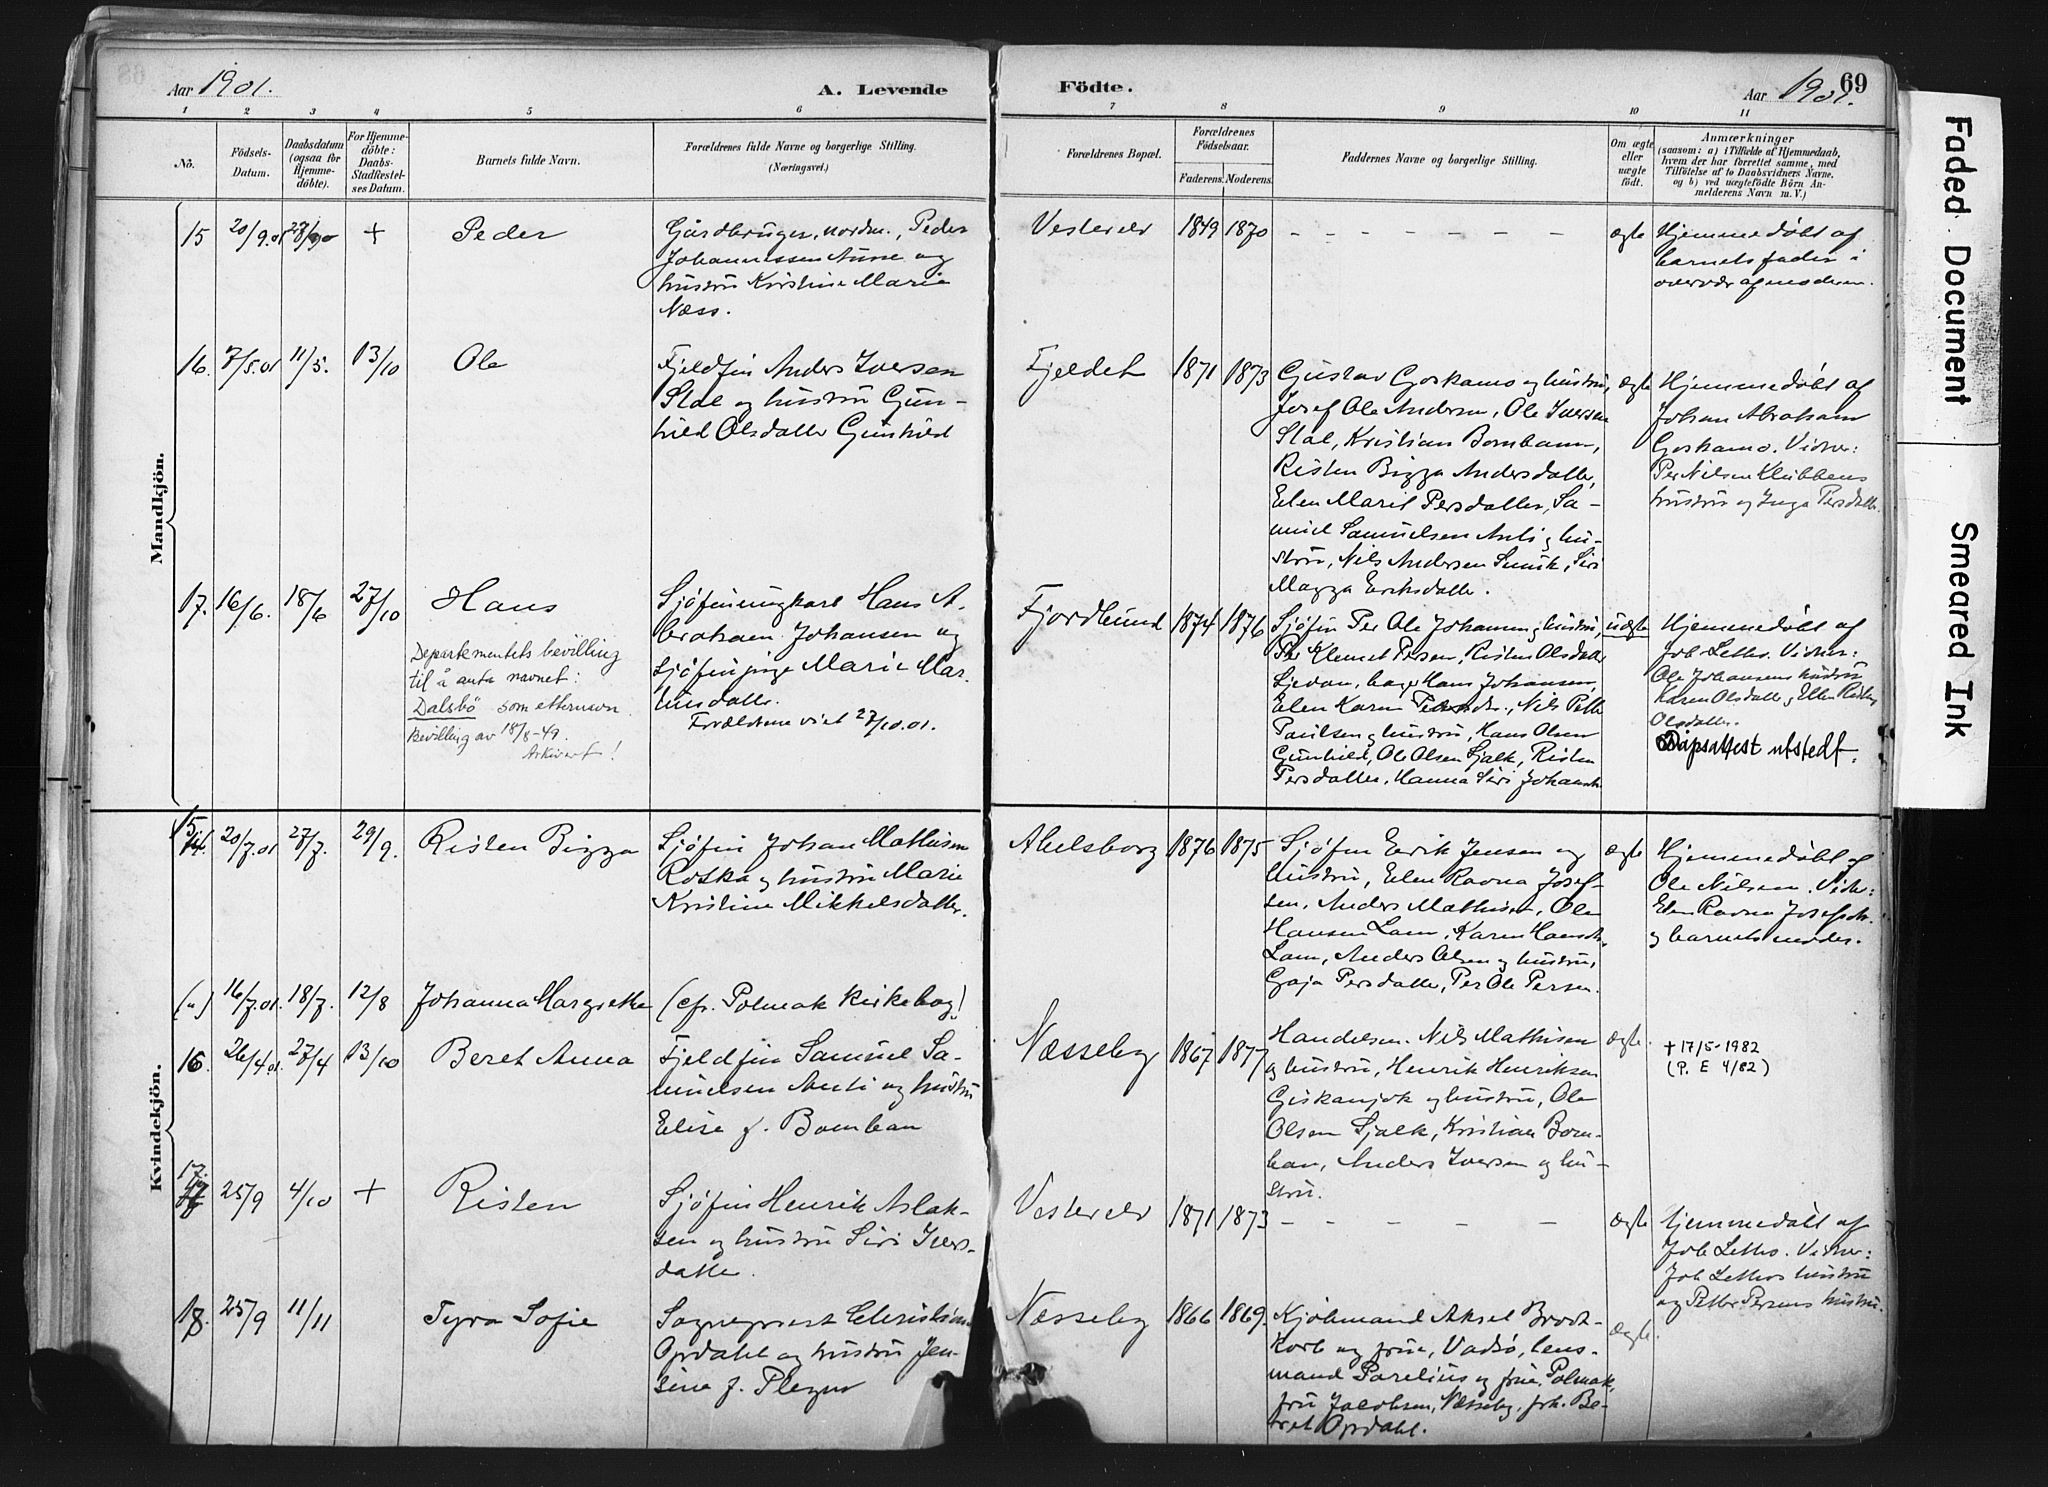 Aar 1901.
A. Levende
Födte.
Aar 1901.
69
1 2 3 4 5 6 7 8 9 10 11
Nô.
Födsels-
Datum.
Daabsdatum
(ogsaa for
Hjemme-
döbte).
For Hjemme-
döbte:
Daabs-
Stadfæstel-
ses Datum.
Barnets fulde Navn.
Forældrenes fulde Navne og borgerlige Stilling.
(Næringsvei.)
Forældrenes Bopæl.
Forældrenes
Födselsaar.
Faderens. Moderens.
Faddernes Navne og borgerlige Stilling.
Om ægte
eller
uægte
födt.
Anmærkninger
(saasom: a) i Tilfælde af Hjemmedaab,
hvem der har forrettet samme, med
Tilföielse af to Daabsvidners Navne.
og b) ved uægtefödte Börn An-
melderens Navn m. V.)
Mandkjön.
15 20/9.01 + Peder
Gårdbruger, nordm., Peder
Johannessen Aune og
hustru Kristine Marie
Næss.
Vesterelv 1849 1870 - - - - - - - ægte
Hjemmedøbt af
barnets fader i
overvær af moderen.
16. 7/5.01 11/5. 13/10 Ole
Fjeldfin Anders Iversen
Stal og hustru Gun-
hild Olsdatter Gunhild
Fjeldet 1871 1873
Gustav Goskamo og hustru,
Josef Ole Andersen, Ole Iversen
Stal, Kristian Bomban,
Risten Bigga Andersdatter,
Elen Marit Persdatter, Sa-
muel Samuelsen Anti og hu-
stru, Nils Andersen, Siri
Magga Eriksdatter.
ægte
Hjemmedøbt af
Johan Abraham
Goskamo. Vidner:
Per Nilsen Klubbens
hustru og Inga Persdatter.
17. 16/6. 18/6 27/10 Hans
Departementets bevilling
til å anta navnet:
Dalsbö som etternavn.
Bevilling av 18/8-49.
Arkivert!
Sjöfinungkarl Hans A-
braham Johansen og
Sjöfinpige Marie Mar-
kusdatter.
Forældrene viet 27/10.01.
Fjordbund 1874 1876
Sjöfin Per Ole Johansen og hustru,
Per Klemet Persen, Risten Olsdatter
Hans Johansen,
Elen Karin Nils Petter
Paulsen og hustru, Hans Olsen
Gunhild, Ole Olsen Sjalk, Risten
Persdatter, Hanna Siri Johansd.
uægte
Hjemmedøbt af
Job Letho. Vidner:
Ole Johansens hustru
Karen Olsdatter og Ellen Risten
Olsdatter.
Dåpsattest utstedt.
Kvindekjön.
15. 14. 20/7.01 27/7. 29/9. Risten Bigga
Sjöfin Johan Mathisen
Roska og hustru Marie
Kristine Mikkelsdatter.
Abelsborg 1876 1875
Sjöfin Erik Jensen og
hustru, Elen Ravna Josef-
sen, Anders Mathisen, Ole
Hansen Lam, Karen Hansdt.
Lam, Anders Olsen og hustru,
Gaja Persdatter, Per Ole Persen.
ægte
Hjemmedøbt af
Ole Nilsen. Vidner:
Elen Ravna Josefsdt.
og barnets moder.
16/7.01. 18/7. 12/8 Johanna Margrethe (cfr. Polmak kirkebog!)
16. 26/4.01. 27/4 13/10 Beret Anna
Fjeldfin Samuel Sa-
muelsen Anti og hustru
Elise f. Bomban
Næsseby 1867 1877
Handelsm. Nils Mathisen
og hustru, Henrik Henriksen
Giskanjok og hustru, Ole
Olsen Sjalk, Kristian Bom-
ban, Anders Iversen og hu-
stru.
ægte.
+ 17/5-1982
(P. E 4/82)
17. 25/9 4/10 + Risten
Sjöfin Henrik Aslak-
sen og hustru Siri Ivers-
datter.
Vesterelv 1871 1873 - - - - - ægte
hjemmedøbt af
Job Letho. Vidner:
Job Lethos hustru
og Petter Persens hustru.
18. 25/9 11/11 Tyra Sofie
Sogneprest Christian
Opdahl og hustru Jen-
sine f. Pleym
Næsseby 1866 1869.
Kjöbmand Aksel Brodt-
korb og frue, Vadsö, lens-
mand Parelius og frue, Polmak,
fru Jacobsen, Næsseby, frk. Be-
ret Opdahl.
ægte.
Faded Document
Smeared Ink